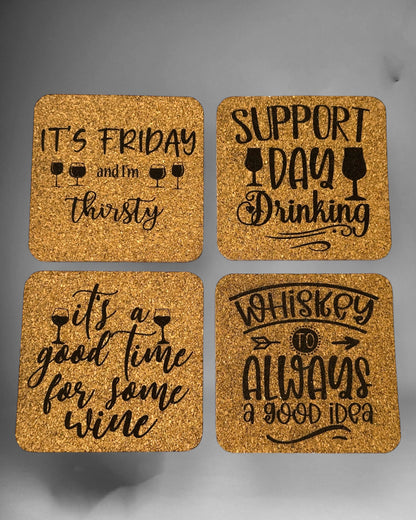 IT'S FRIDAY
and I'm
thirsty
SUPPORT
DAY
Drinking
it's a
good time
for some
wine
WHISKEY
TO
ALWAYS
a GOOD IDEA